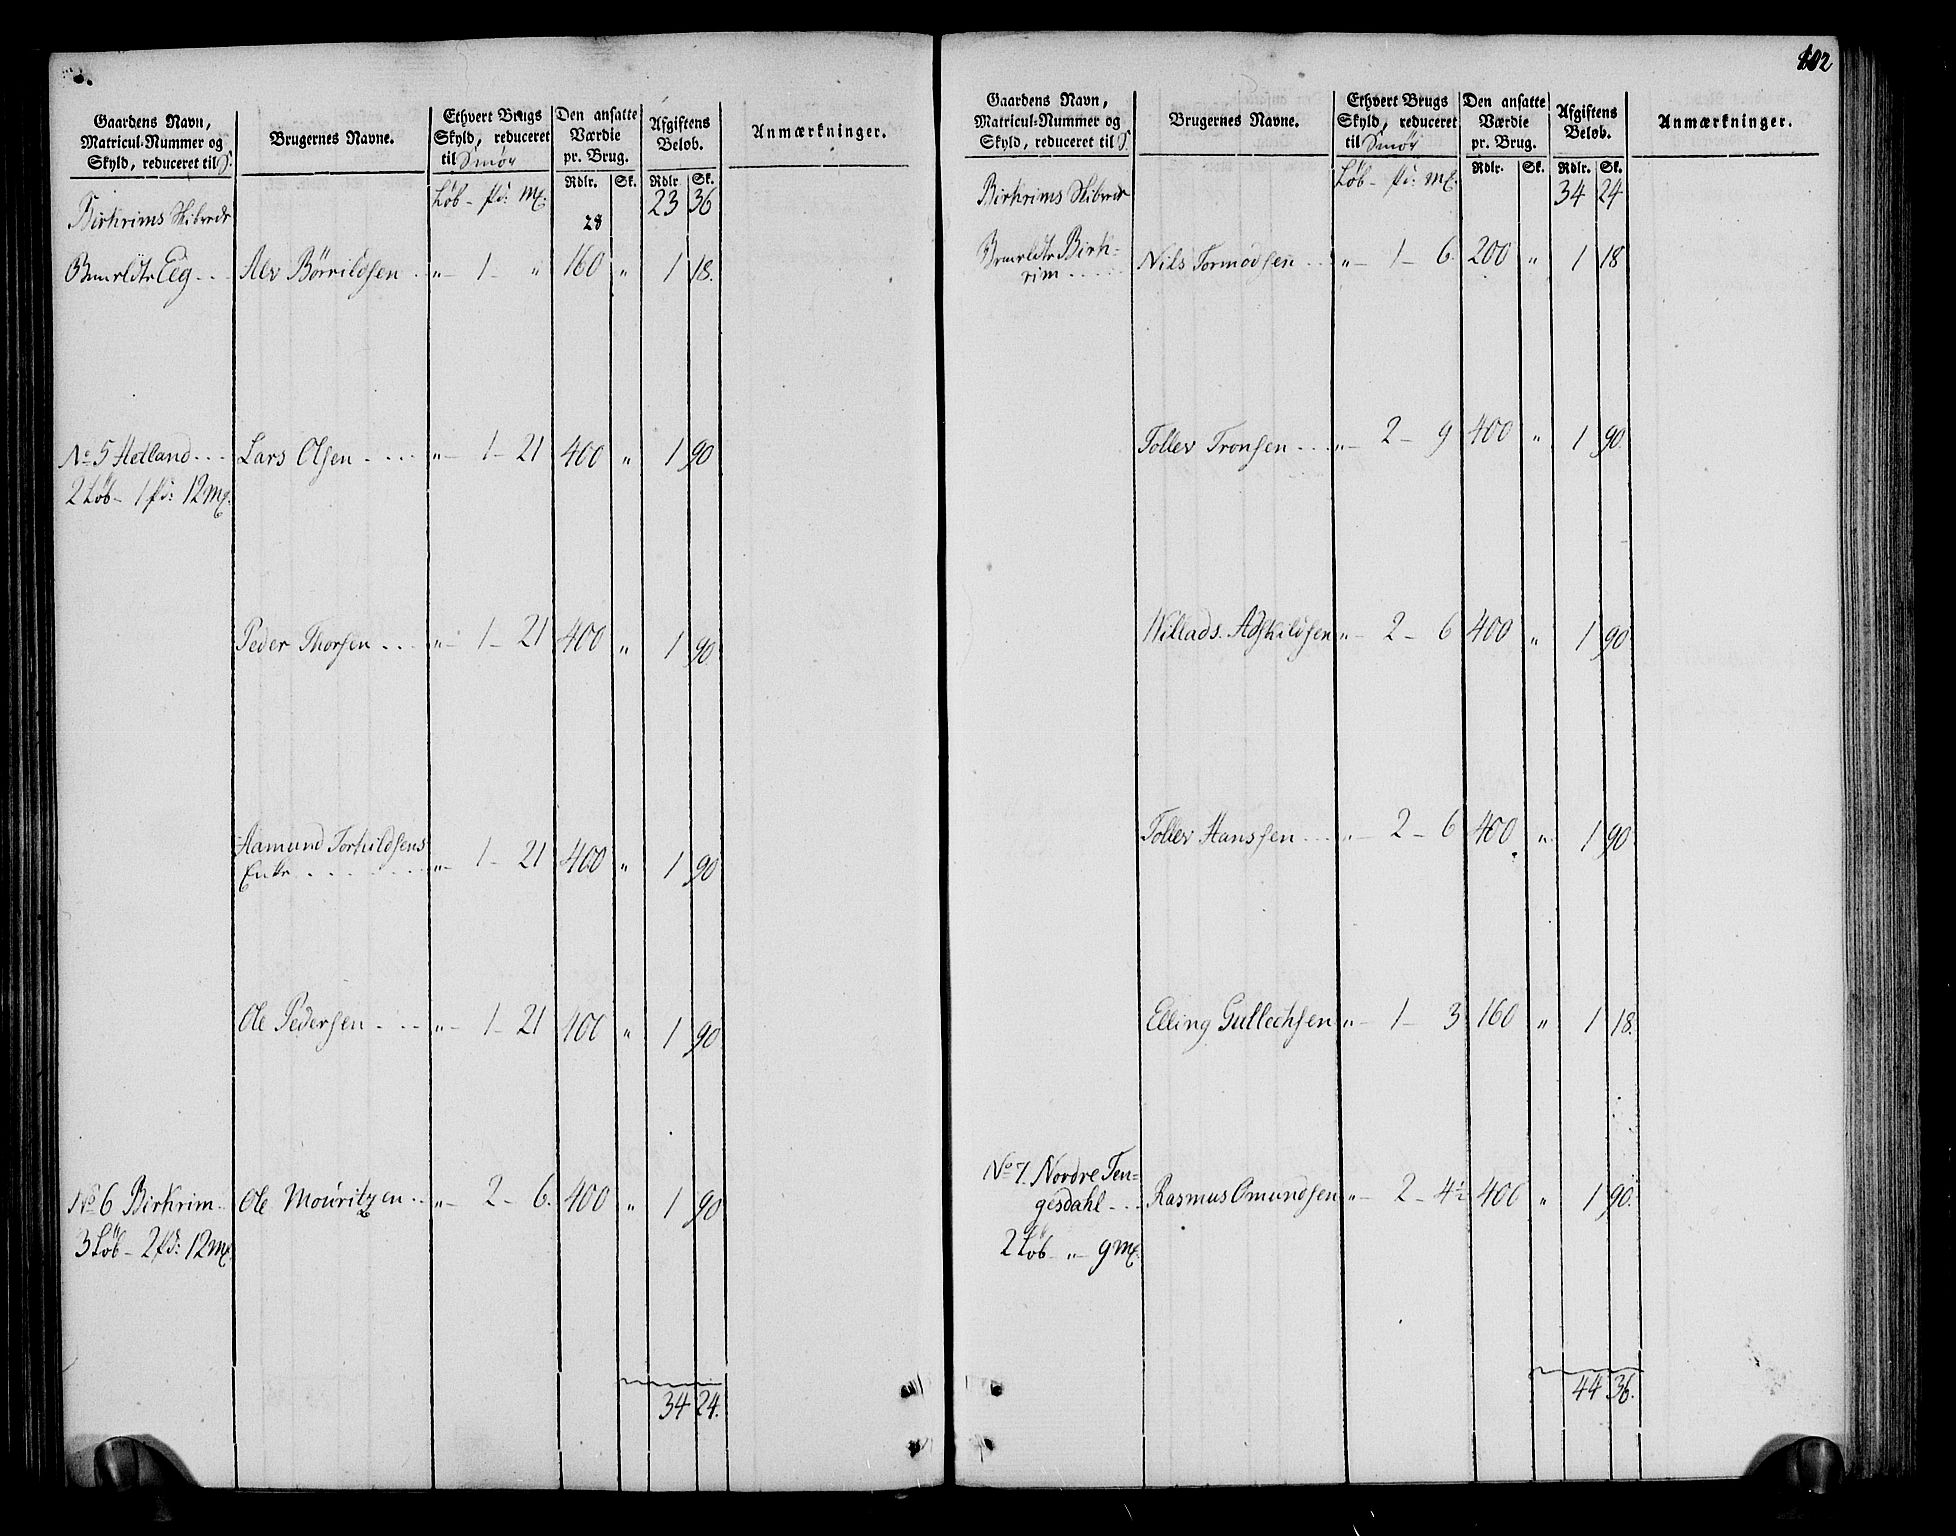 Gaardens Navn,
Matricul-Nummer og
Skyld, reduceret til S.
Brugernes Navne.
Ethvert Brugs
Skyld, reduceret
til Smør
Den ansatte
Værdie
pr. Brug.
Afgiftens
Beløb.
Anmærkninger.
Rdlr. Sk. Rdlr Sk.
Birkrims Skibrede Løb - pd: mk: 23 36
28
Eeg Alv Børrildsen " 1 - " 160 " 1 18.
No 5 Helland Lars Olsen " 1 - 21 400 " 1 90
2 Løb - 1 pd: 12 mk.
Peder Thorsen " 1 - 21 400 " 1 90
Aamund Torkildsens
Enke " 1 - 21 400 " 1 90
Ole Pedersen " 1 - 21 400 " 1 90
No 6 Birkrim Ole Mouritzen " 2 - 6. 400 " 1 90
3 Løb - 2 pd: 12 mk.
34 24.
102
Gaardens Navn,
Matricul-Nummer og
Skyld, reduceret til S.
Brugernes Navne.
Ethvert Brugs
Skyld, reduceret
til Smør
Den ansatte
Værdie
pr. Brug.
Afgiftens
Beløb.
Anmærkninger.
Rdlr. Sk. Rdlr. Sk.
Birkrims Skibrede Løb - pd: mk. 34 24
Birk-
rim Nils Tormodsen " 1 - 6. 200 " 1 18
Tollev Tronsen " 2 - 9 400 " 1 90
Willads Adskildsen " 2 - 6 400 " 1 90
Tollev Hanssen " 2 - 6 400 " 1 90
Elling Gullechsen " 1 - 3 160 " 1 18.
No 7. Nordre Ten=
gesdahl Rasmus Omundsen " 2 - 4½ 400 " 1 90.
2 Løb - " - 9 mk.
44 36.